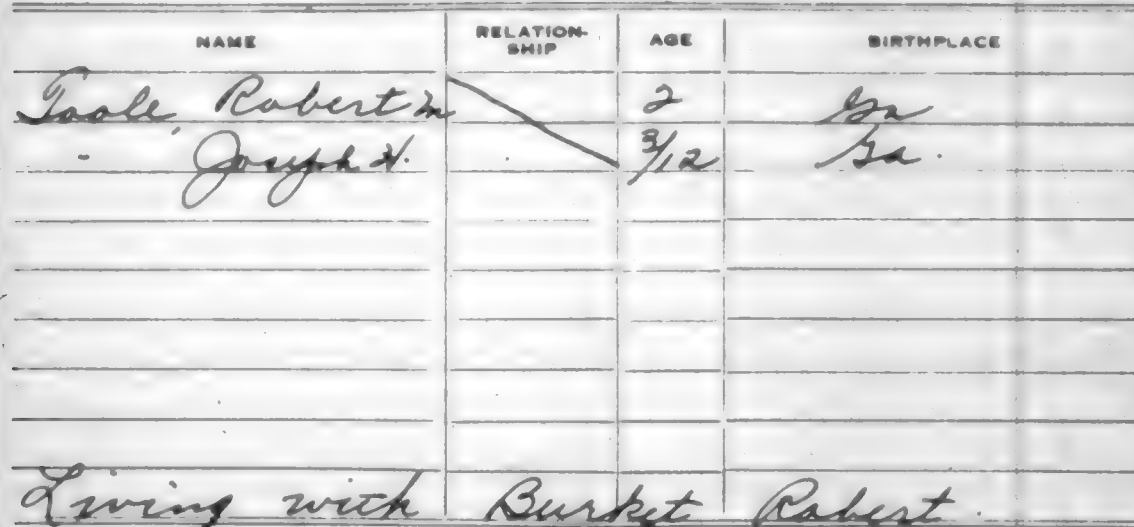 NAME RELATION-SHIP AGE BIRTHPLACE
Toole, Robert M 2 Ga
- Joseph H. 3/12 Ga.
Living with Burket Robert.